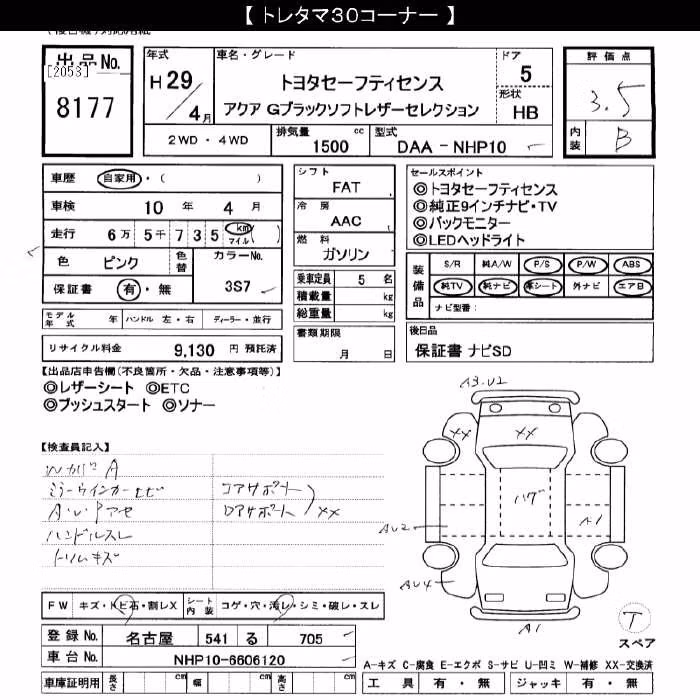 【トレタマ30コーナー】
出品No.
[2053]
8177
年式
H29/4月
車名・グレード
トヨタセーフティセンス
アクア Gブラックソフトレザーセレクション
ドア
5
形状
HB
評価点
3.5
内装
B
2WD・4WD
排気量
1500 cc
型式
DAA-NHP10
車歴 自家用・( )
車検 10年 4月
走行 6万5千735 km マイル ( )
色 ピンク 色替 カラーNo. 3S7
保証書 有・無
シフト FAT
冷房 AAC
燃料 ガソリン
乗車定員 5名
積載量 kg
総重量 kg
書類期限 月 日
セールスポイント
◎トヨタセーフティセンス
◎純正9インチナビ・TV
◎バックモニター
◎LEDヘッドライト
装備品
S/R 純A/W P/S P/W ABS
純TV 純ナビ 革シート 外ナビ エアB
ナビ型番:
モデル年式 年 ハンドル 左・右 ディーラー・並行
リサイクル料金 9,130 円 預託済
後日品
保証書 ナビSD
【出品店申告欄(不良箇所・欠品・注意事項等)】
◎レザーシート ◎ETC
◎プッシュスタート ◎ソナー
【検査員記入】
ミラーウインカーヒビ
A・U・Pアセ
ハンドルスレ
トリムキズ
コアサポート
ロアサポート XX
A3.U2
XX
XX
ハゲ
AU2
A1
AU4
A1
T
スペア
FW キズ・トビ石・割レX シート内装 コゲ・穴・汚レ・シミ・破レ・スレ
登録No. 名古屋 541 る 705
車台No. NHP10-6606120
車庫証明用 長さ cm 幅 cm 高さ cm
A-キズ C-腐食 E-エクボ S-サビ U-凹ミ W-補修 XX-交換済
工具 有・無 ジャッキ 有・無